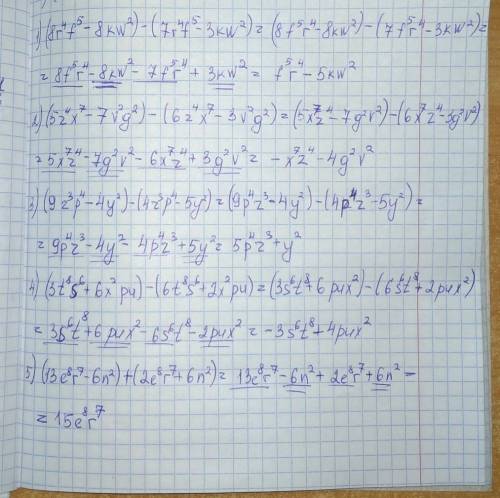 1) (8r⁴f⁵-8kw²)-(7r⁴f⁵-3kw²)=(8f⁵r⁴-8kw²)-(7f⁵r⁴-3kw²)=
=8f⁵r⁴-8kw²-7f⁵r⁴+3kw²= f⁵r⁴-5kw²
2) (5z⁴x⁷-7v²g²)-(6z⁴x⁷-3v²g²)=(5x⁷z⁴-7g²v²)-(6x⁷z⁴-3g²v²)
=5x⁷z⁴-7g²v²-6x⁷z⁴+3g²v²= -x⁷z⁴-4g²v²
3) (9z³p⁴-4y²)-(4z³p⁴-5y²)=(9p⁴z³-4y²)-(4p⁴z³-5y²)=
=9p⁴z³-4y²-4p⁴z³+5y²=5p⁴z³+y²
4) (3t⁸s⁶+6x²pu)-(6t⁸s⁶+2x²pu)=(3s⁶t⁸+6pux²)-(6s⁶t⁸+2pux²)
=3s⁶t⁸+6pux²-6s⁶t⁸-2pux²=-3s⁶t⁸+4pux²
5) (13e⁸r⁷-6n²)+(2e⁸r⁷+6n²)=13e⁸r⁷-6n²+2e⁸r⁷+6n²=
=15e⁸r⁷